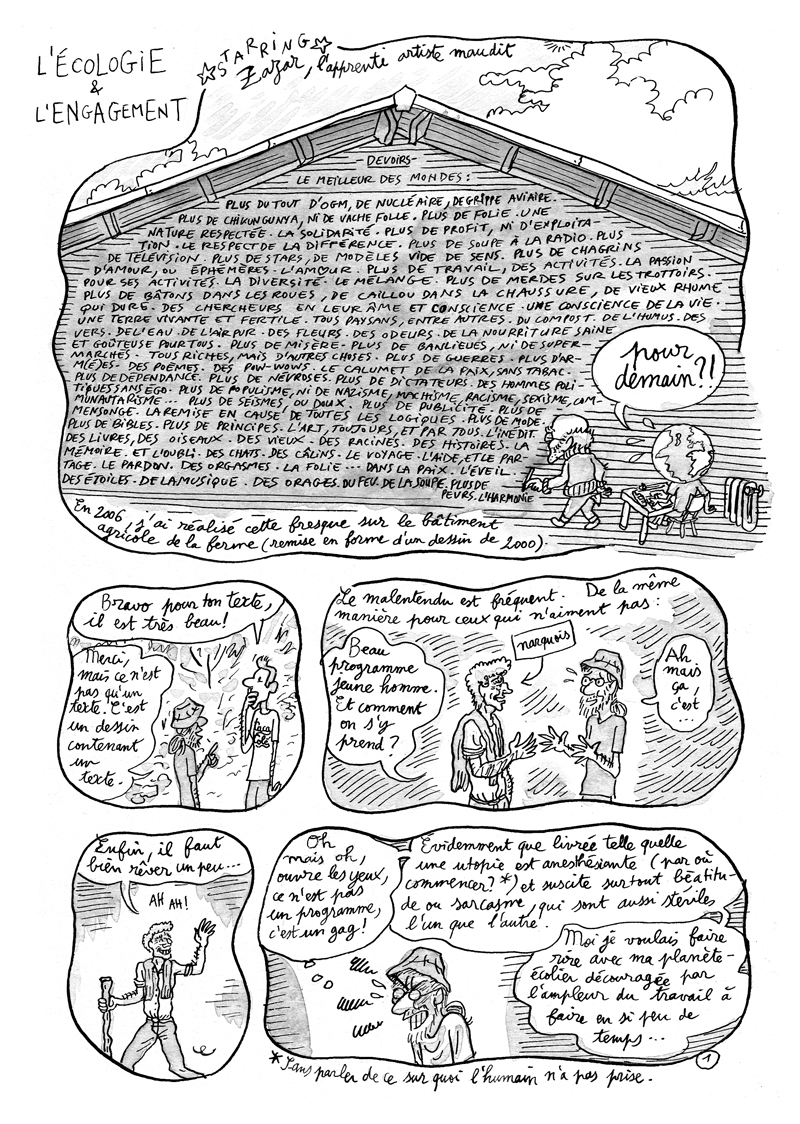 L'ÉCOLOGIE
&
L'ENGAGEMENT
STARRING
Zazar, l'apprenti artiste maudit
-DEVOIRS-
LE MEILLEUR DES MONDES :
PLUS DU TOUT D'OGM, DE NUCLÉAIRE, DE GRIPPE AVIAIRE.
PLUS DE CHIKUNGUNYA, NI DE VACHE FOLLE. PLUS DE FOLIE. UNE
NATURE RESPECTÉE. LA SOLIDARITÉ. PLUS DE PROFIT, NI D'EXPLOITA-
TION. LE RESPECT DE LA DIFFÉRENCE. PLUS DE SOUPE À LA RADIO. PLUS
DE TÉLÉVISION. PLUS DE STARS, DE MODÈLES VIDE DE SENS. PLUS DE CHAGRINS
D'AMOUR, OU ÉPHÉMÈRES. L'AMOUR. PLUS DE TRAVAIL, DES ACTIVITÉS. LA PASSION
POUR SES ACTIVITÉS. LA DIVERSITÉ. LE MÉLANGE. PLUS DE MERDES SUR LES TROTTOIRS.
PLUS DE BÂTONS DANS LES ROUES, DE CAILLOU DANS LA CHAUSSURE, DE VIEUX RHUME
QUI DURE. DES CHERCHEURS EN LEUR ÂME ET CONSCIENCE. UNE CONSCIENCE DE LA VIE.
UNE TERRE VIVANTE ET FERTILE. TOUS PAYSANS, ENTRE AUTRES. DU COMPOST. DE L'HUMUS. DES
VERS. DE L'EAU. DE L'AIR PUR. DES FLEURS. DES ODEURS. DE LA NOURRITURE SAINE
ET GOÛTEUSE POUR TOUS. PLUS DE MISÈRE. PLUS DE BANLIEUES, NI DE SUPER-
MARCHÉS. TOUS RICHES, MAIS D'AUTRES CHOSES. PLUS DE GUERRES. PLUS D'AR-
M(É)ES. DES POÈMES. DES POW-WOWS. LE CALUMET DE LA PAIX, SANS TABAC.
PLUS DE DÉPENDANCE. PLUS DE NÉVROSES. PLUS DE DICTATEURS. DES HOMMES POLI-
TIQUES SANS EGO. PLUS DE POPULISME, NI DE NAZISME, MACHISME, RACISME, SEXISME, COM-
MUNAUTARISME ... PLUS DE SÉISMES, OU DOUX. PLUS DE PUBLICITÉ. PLUS DE
MENSONGE. LA REMISE EN CAUSE DE TOUTES LES LOGIQUES. PLUS DE MODE.
PLUS DE BIBLES. PLUS DE PRINCIPES. L'ART, TOUJOURS, ET PAR TOUS. L'INÉDIT.
DES LIVRES, DES OISEAUX. DES VIEUX. DES RACINES. DES HISTOIRES. LA
MÉMOIRE. ET L'OUBLI. DES CHATS. DES CÂLINS. LE VOYAGE. L'AIDE, ET LE PAR-
TAGE. LE PARDON. DES ORGASMES. LA FOLIE... DANS LA PAIX. L'ÉVEIL.
DES ÉTOILES. DE LA MUSIQUE. DES ORAGES. DU FEU. DE LA SOUPE. PLUS DE
PEURS. L'HARMONIE
pour
demain?!
En 2006, j'ai réalisé cette fresque sur le bâtiment
agricole de la ferme (remise en forme d'un dessin de 2000).
Bravo pour ton texte,
il est très beau!
Merci,
mais ce n'est
pas qu'un
texte. C'est
un dessin
contenant
un
texte.
Caca
Colo
Le malentendu est fréquent. De la même
manière pour ceux qui n'aiment pas :
Beau
programme
jeune homme.
Et comment
on s'y
prend ?
narquois
Ah
mais
ça,
c'est
...
Enfin, il faut
bien rêver un peu...
AH AH!
Oh
mais oh,
ouvre les yeux,
ce n'est pas
un programme,
c'est un gag!
Evidemment que livrée telle quelle
une utopie est anesthésiante (par où
commencer?*) et suscite surtout béatitu-
de ou sarcasme, qui sont aussi stériles
l'un que l'autre.
Moi je voulais faire
rire avec ma planète-
écolier découragée par
l'ampleur du travail à
faire en si peu de
temps...
1
*Sans parler de ce sur quoi l'humain n'a pas prise.